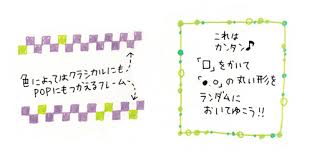 色によってはクラシカルにも
POPにもつかえるフレーム
これは
カンタン♪
「□」をかいて
「●。○」の丸い形を
ランダムに
おいてゆこう!!